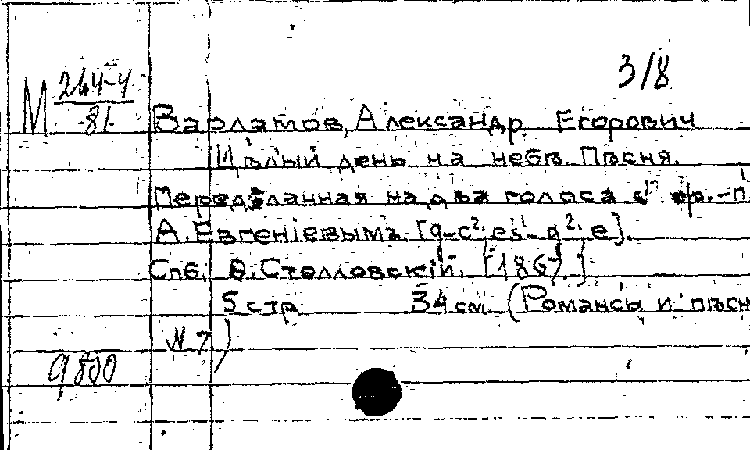 3/8
М 244-4
81
Варламов, Александр Егорович
Цѣлый день на небѣ. Пѣсня.
Передѣланная на два голоса с фр.-п
А. Евгеніевымъ. [g-c²; es¹-g²; e].
Спб. Ѳ. Стелловскій. [186?.]
5 стр 34 см (Романсы и пѣсн
№ 7)
9800